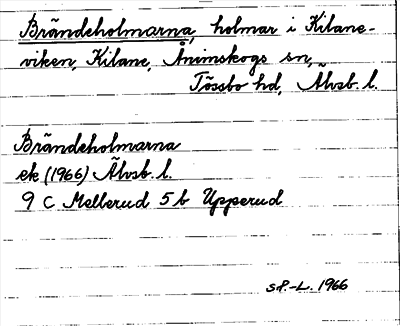 Brändeholmarna, holmar i Kilane-
viken, Kilane, Ånimskogs sn,
Tössbo hd, Älvsb. l.
Brändeholmarna
ek (1966) Älvsb. l.
9 C Mellerud 5b Upperud
SP.-L. 1966